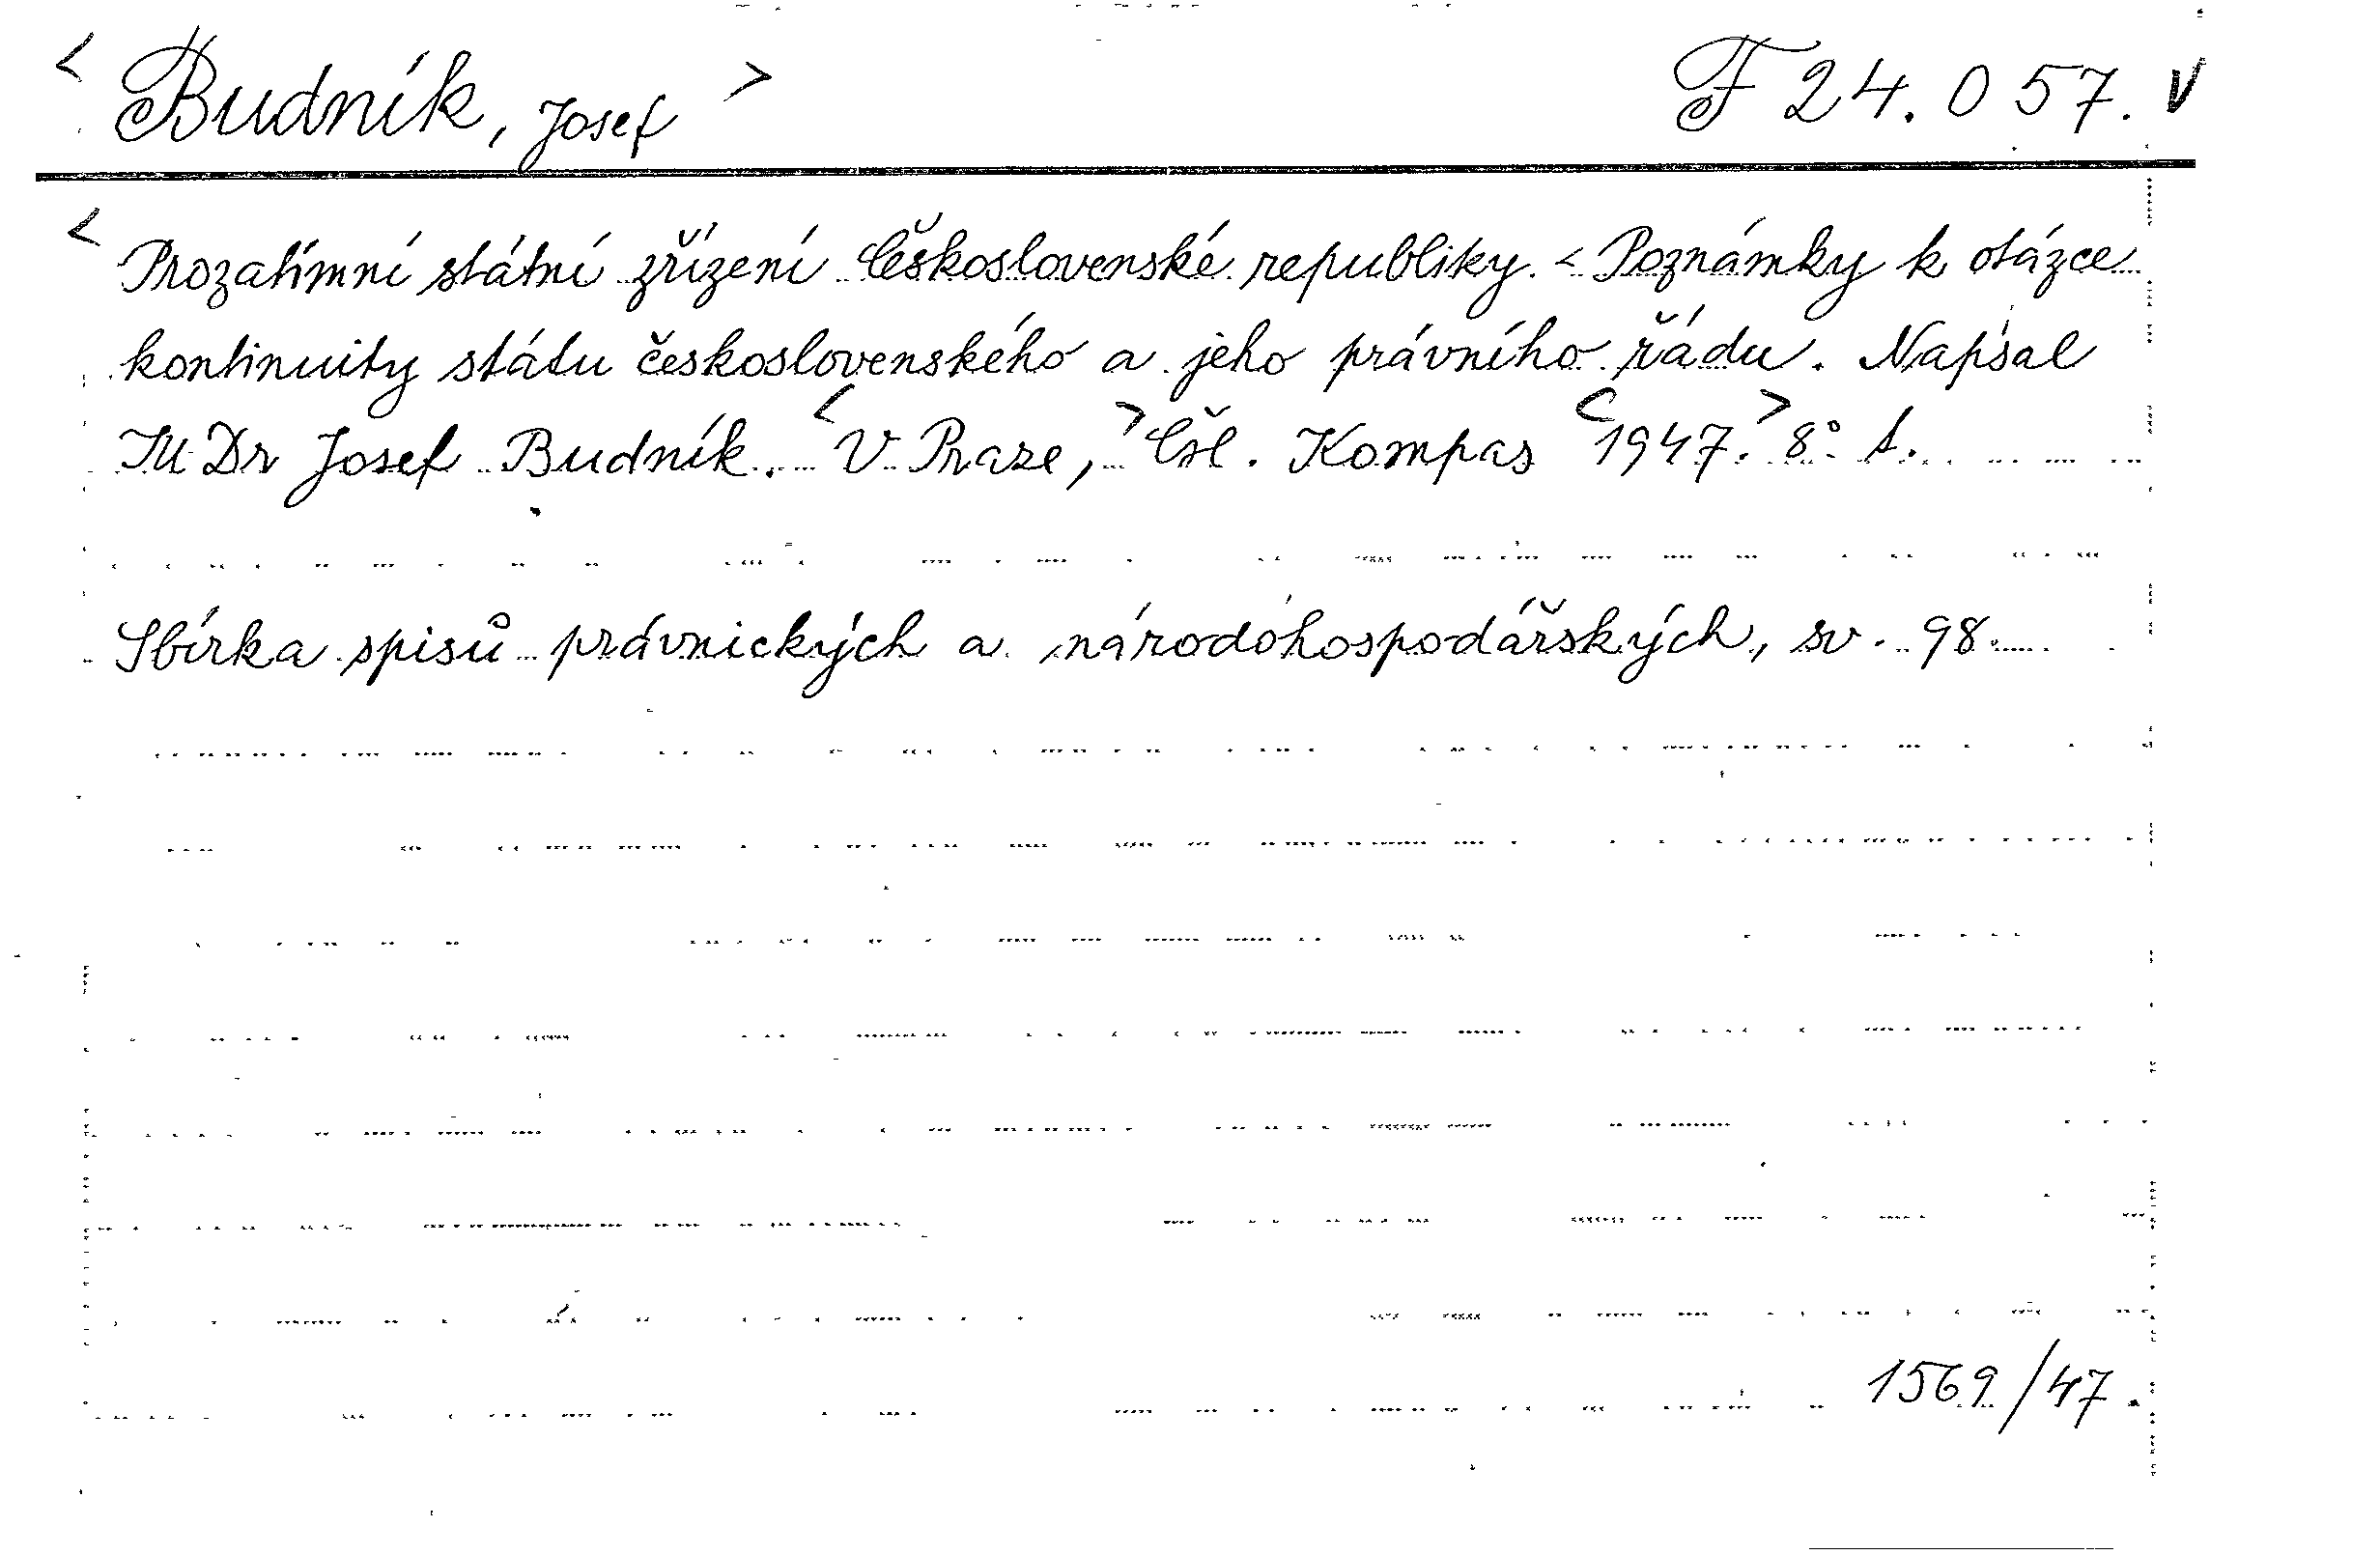 < Budník, Josef > F 24.057. V
< Prozatímní státní zřízení Československé republiky. < Poznámky k otázce
kontinuity státu československého a jeho právního řádu. Napsal
JUDr Josef Budník. < V Praze, > Čsl. Kompas < 1947. > 8° s.
Sbírka spisů právnických a národohospodářských, sv. 98.
1569/47.